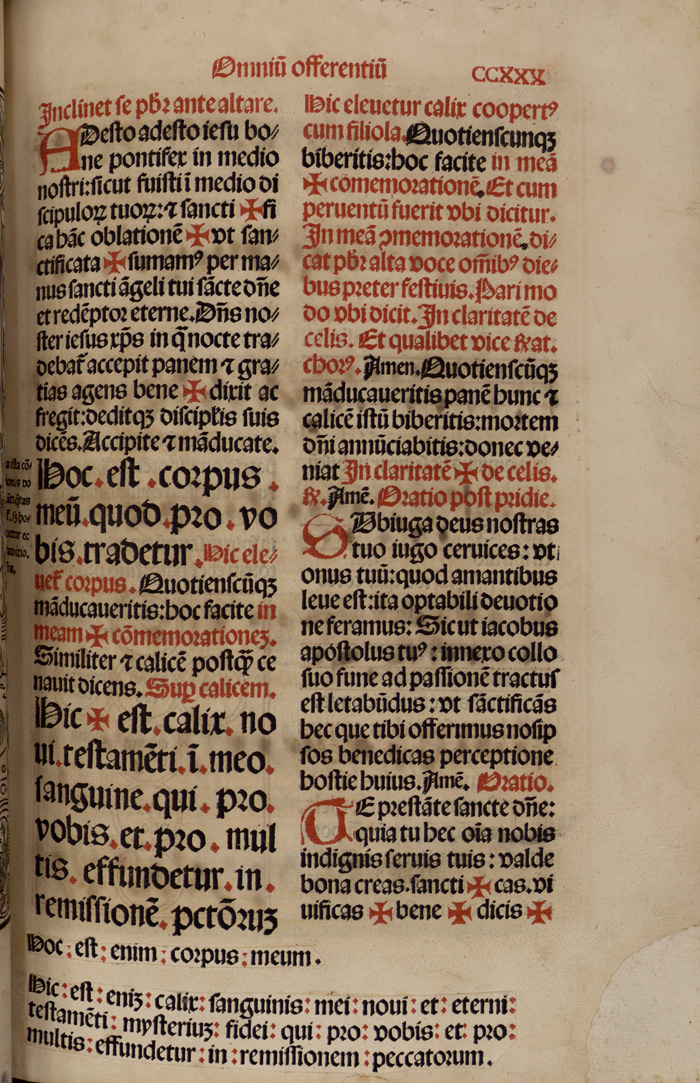 Omniū offerentiū
CCXXX
Inclinet se pb̄r ante altare.
ADesto adesto iesu bo⸗
ne pontifex in medio
nostri:sicut fuisti ī medio di
scipuloꝝ tuoꝝ:⁊ sancti ✠fi
ca hāc oblationē ✠vt san⸗
ctificata ✠sumamꝰ per ma⸗
nus sancti āgeli tui sācte dn̄e
et redēptor eterne.Dn̄s no⸗
ster iesus xp̄s in q̄ nocte tra⸗
debat̄ accepit panem ⁊ gra⸗
tias agens bene ✠ dixit ac
fregit:deditqꝫ discipl̄is suis
dicēs.Accipite ⁊ māducate.
Hoc.est.corpus.
meū.quod.pro.vo
bis.tradetur.Hic ele⸗
uet̄ corpus.Quotienscūqꝫ
māducaueritis:hoc facite in
meam ✠ cōmemorationeꝫ.
Similiter ⁊ calicē postꝙ̄ ce
nauit dicens.Suꝑ calicem.
Hic ✠ est.calix.no
ui.testamēti.ī.meo.
sanguine.qui.pro.
vobis.et.pro.mul
tis.effundetur.in.
remissionē.pctōruꝫ
Hic eleuetur calix coopertꝰ
cum filiola.Quotienscunqꝫ
biberitis:hoc facite in meā
✠cōmemorationē.Et cum
peruentū fuerit vbi dicitur.
In meā ꝯmemorationē.di⸗
cat pb̄r alta voce oīnibꝰ die⸗
bus preter festiuis.Pari mo
do vbi dicit.In claritatē de
celis. Et qualibet vice ℟at.
chorꝰ.Amen.Quotienscūqꝫ
māducaueritis panē hunc ⁊
calicē istū biberitis:mortem
dn̄i annūciabitis:donec ve⸗
niat In claritatē ✠ de celis.
℟.Amē.Oratio post pridie.
SUbiuga deus nostras
tuo iugo ceruices: vt
onus tuū:quod amantibus
leue est:ita optabili deuotio
ne feramus: Sicut iacobus
apostolus tuꝰ: innexo collo
suo fune ad passionē tractus
est letabūdus: vt sāctificās
hec que tibi offerimus nosip
sos benedicas perceptione
hostie huius.Amē. Oratio.
TE prestāte sancte dn̄e:
quia tu hec oīa nobis
indignis seruis tuis: valde
bona creas.sancti ✠ cas.vi
uificas ✠ bene ✠ dicis ✠
Hoc: est: enim: corpus: meum.
Hic: est: eniꝫ: calix: sanguinis: mei: noui: et: eterni:
testamēti: mysteriuꝫ: fidei: qui: pro: vobis: et: pro:
multis: effundetur: in: remissionem: peccatorum.